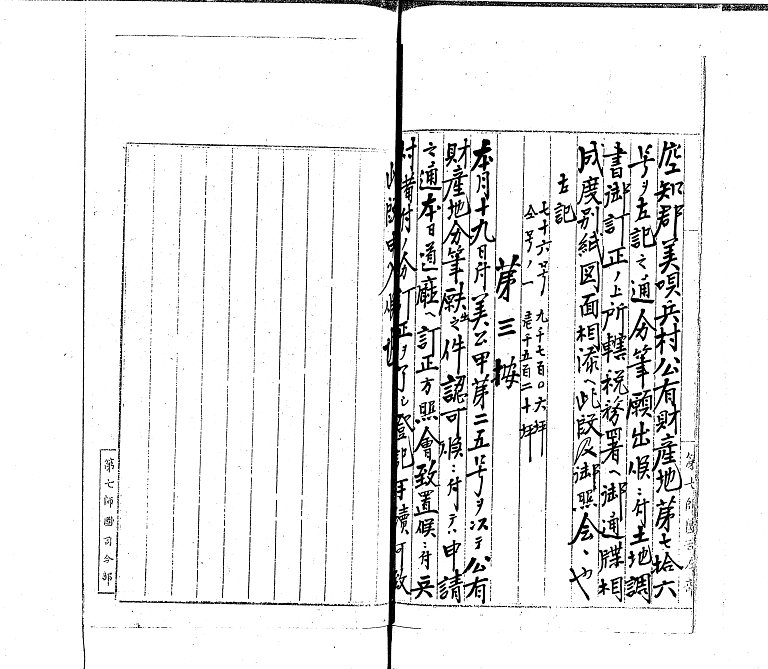 空知郡美唄兵村公有財産地第七拾六
号ヲ左記之通分筆願出候ニ付土地調
書御訂正ノ上所轄税務署ヘ御通牒相
成度別紙図面相添ヘ此段及御照会候也
左記
七十六号 九千七百〇六坪
仝号ノ一 壱千五百二十坪
第三按
本月十九日附美公甲第二五号ヲ以テ公有
財産地分筆願出之件認可候ニ付テハ申請
之通本日道廰ヘ訂正方照會致置候ニ付
付ノ分訂正ヲ了シ登記手續可致
此段申入候也
第七師團司令部
第七師團司令部